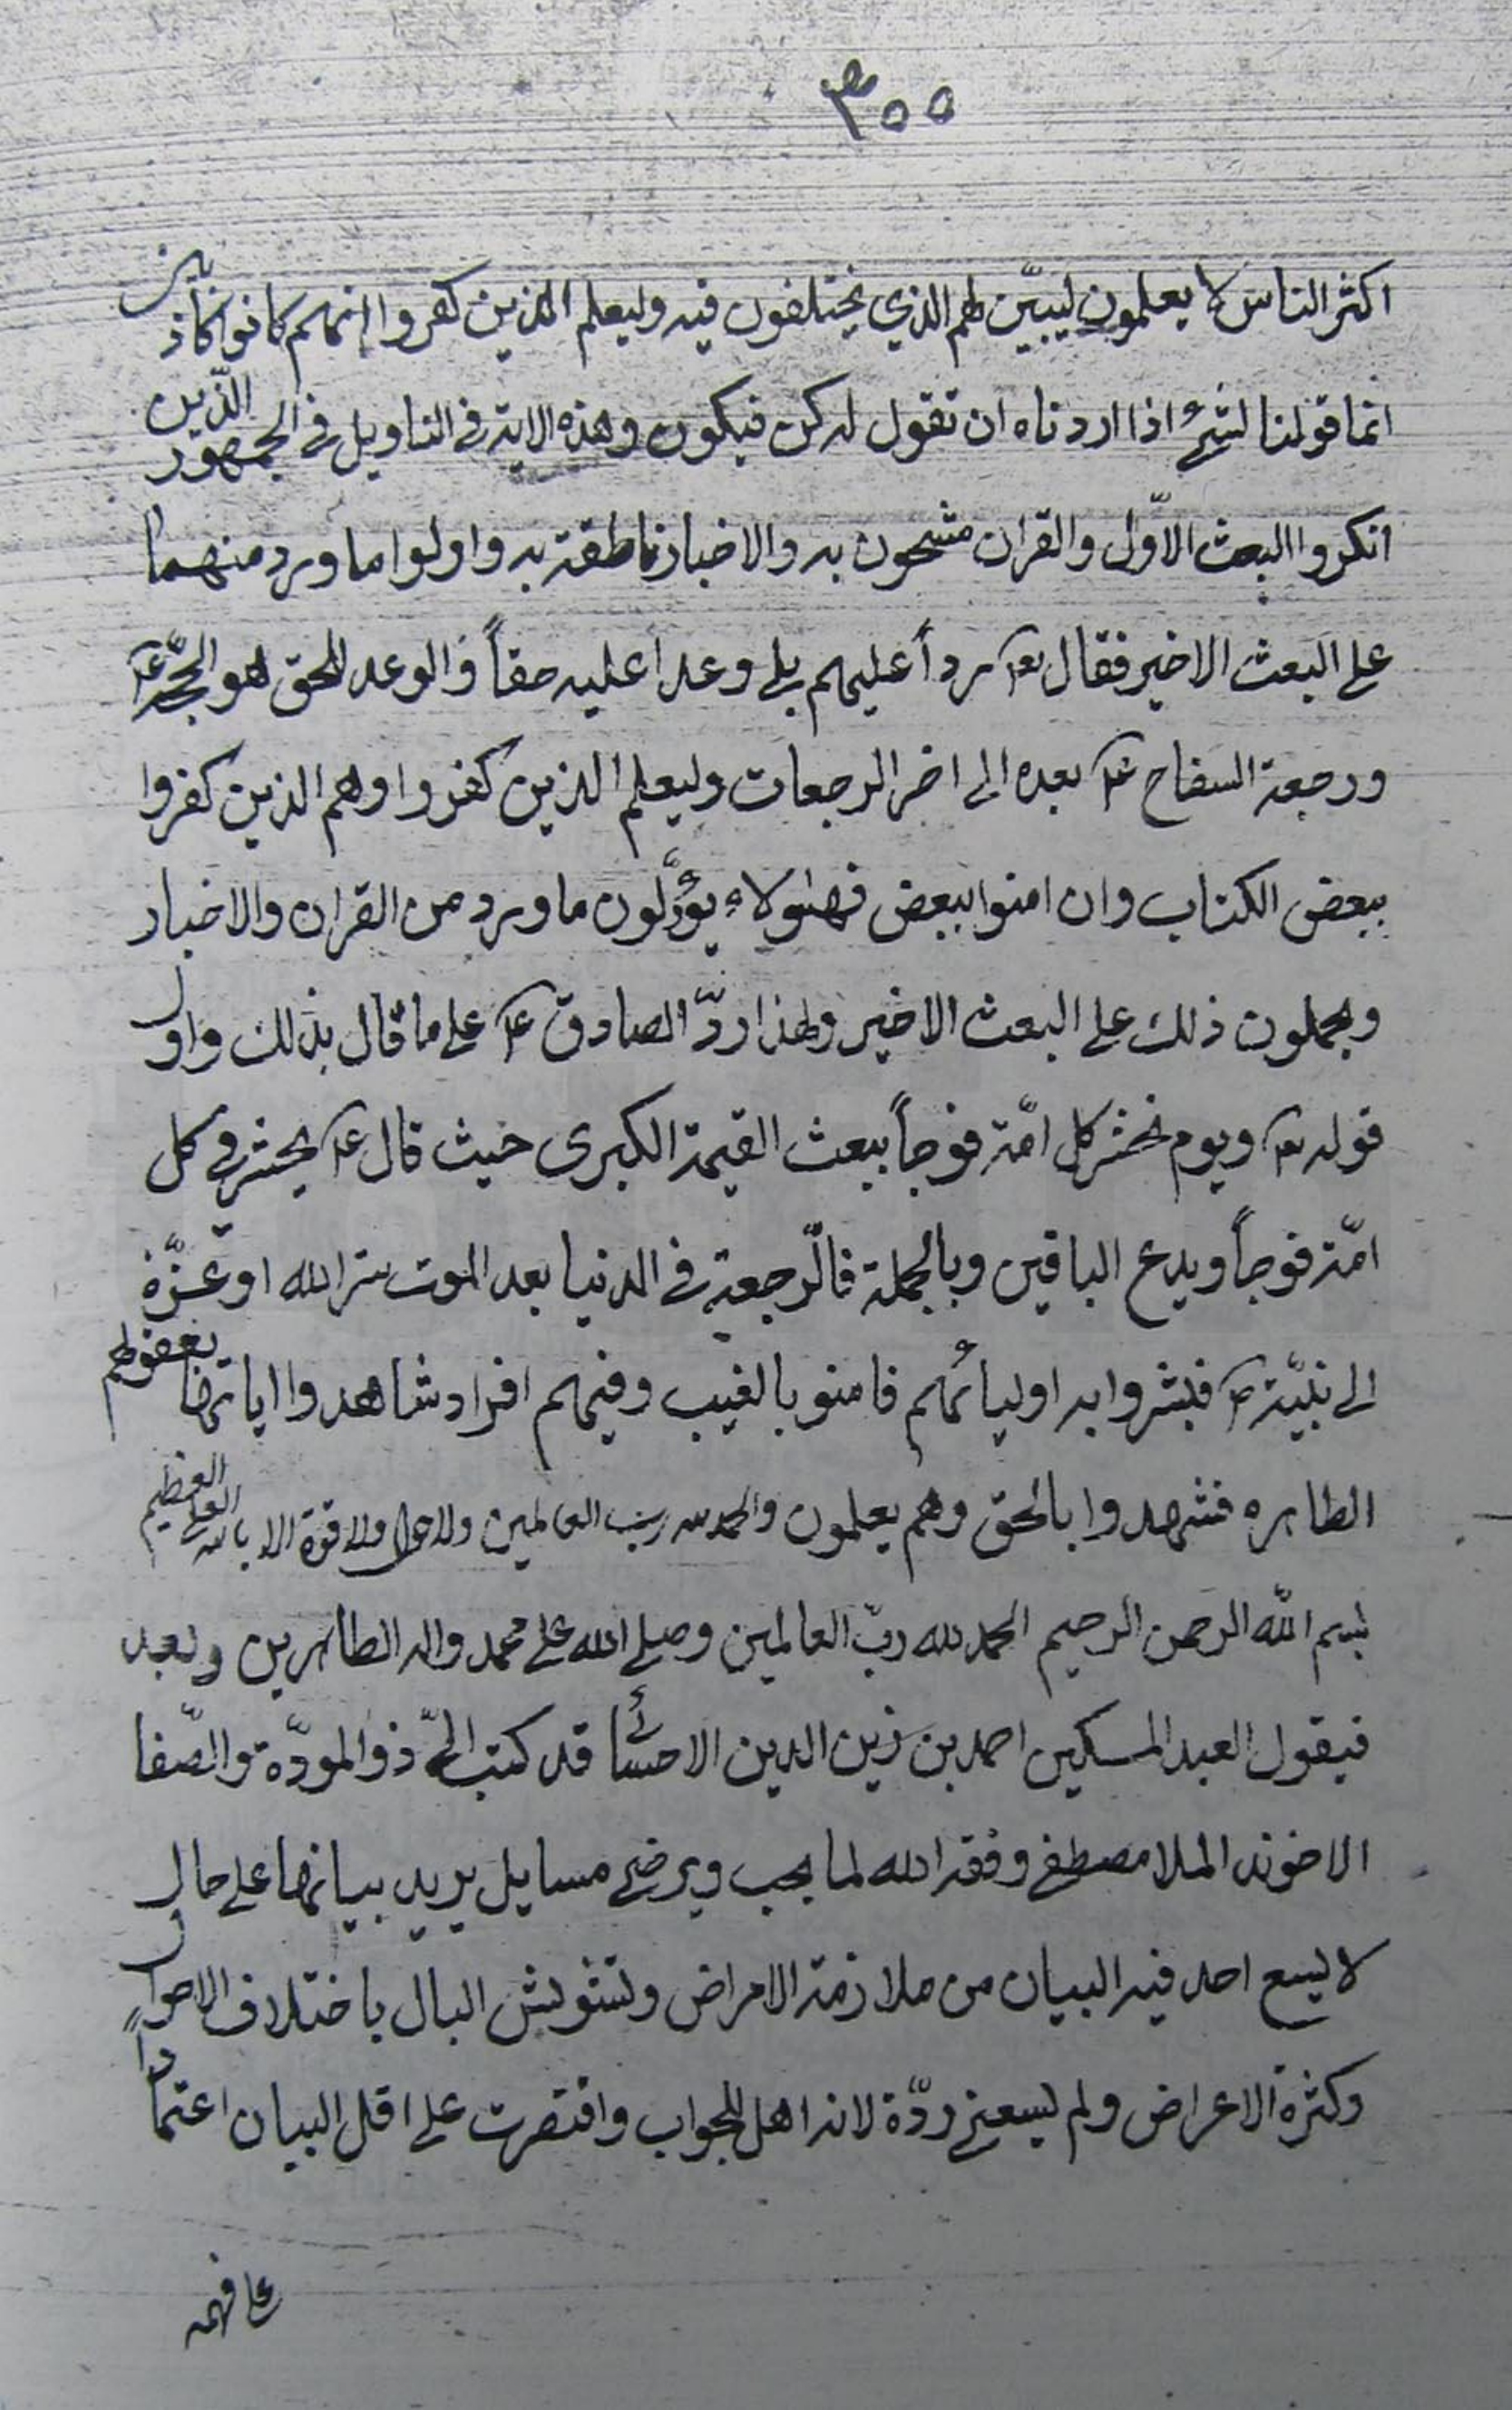 ٣٥٥
اكثر الناس لا يعلمون ليبيّن لهم الذي يختلفون فيه وليعلم الذين كفروا انهم كانوا كاذبين
انما قولنا لشئ اذا اردناه ان نقول له كن فيكون وهذه الاية في التاويل في الجمهور الذين
انكروا البعث الاوّل والقران مشحون به والاخبار ناطقة به واولوا ما ورد منهما
على البعث الاخير فقال تعا رداً عليهم بلى وعدا عليه حقاً والوعد الحق هو الحجّة ع
ورجعة السفاح ع بعده الى اخر الرجعات وليعلم الذين كفروا وهم الذين كفروا
ببعض الكتاب وان امنوا ببعض فهؤلاء يؤوّلون ما ورد من القران والاخبار
ويحملون ذلك على البعث الاخير ولهذا ردّ الصادق ع على ما قال بذلك واول
قوله تعا ويوم نحشر كل امّة فوجاً ببعث القيمة الكبرى حيث قال ع يحشر في كل
امّة فوجاً ويدع الباقين وبالجملة فالرجعة في الدنيا بعد الموت سرّ الله او عزّه
الى نبيّه ص فبشروا به اوليائهم فامنو بالغيب وفيهم افراد شاهدوا اياتها بعقولهم
الطاهره فشهدوا بالحق وهم يعلمون والحمد لله رب العالمين ولا حول ولا قوة الا بالله العلي العظيم
بسم الله الرحمن الرحيم الحمد لله ربّ العالمين وصلى الله على محمد واله الطاهرين وبعد
فيقول العبد المسكين احمد بن زين الدين الاحسائي قد كتب اليّ ذو المودّة والصّفا
الاخوند الملا مصطفى وفقه الله لما يحب ويرضى مسايل يريد بيانها على حال
لا يسع احد فيه البيان من ملازمة الامراض وتشويش البال باختلاف الاحوال
وكثرة الاعراض ولم يسعني ردّه لانه اهل الجواب واقتصرت على اقل البيان اعتماداً
على فهمه